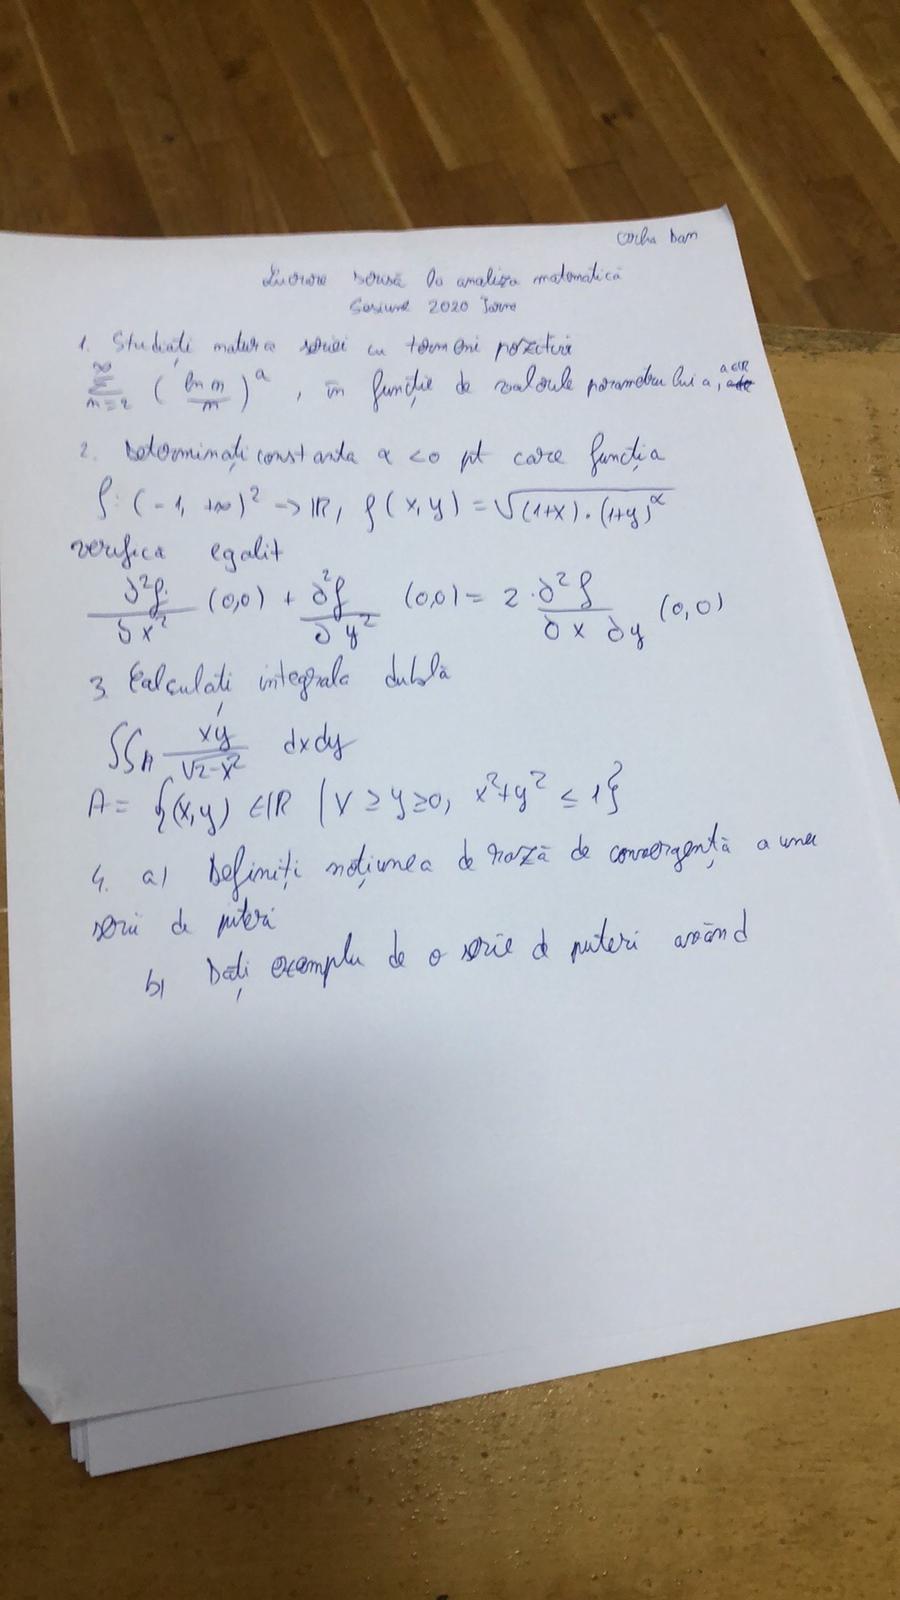 Dan
Lucrare scrisă la analiza matematică
Sesiune 2020 Iarna
1. Studiați natura seriei cu termeni pozitivi
∞ Σ n=2 (ln n / n)^a , în funcție de valorile parametrului a, a∈R
2. Determinați constanta α <0 pt care funcția
f: (-1, +∞)² → R, f(x,y) = √((1+x)·(1+y)^α)
verifica egalit
∂²f/∂x² (0,0) + ∂²f/∂y² (0,0) = 2·∂²f/∂x∂y (0,0)
3. Calculați integrala dublă
∬A xy/√(2-x²) dxdy
A = {(x,y) ∈ R | x ≥ y ≥ 0, x²+y² ≤ 1}
4. a) Definiți noțiunea de rază de convergență a unei
serii de puteri
b) Dați exemplu de o serie de puteri având